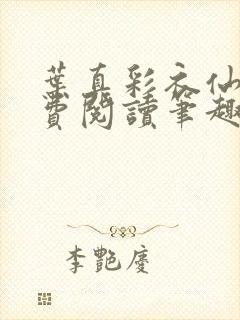 葉真彩衣仙
費閱讀筆趣
李艷慶